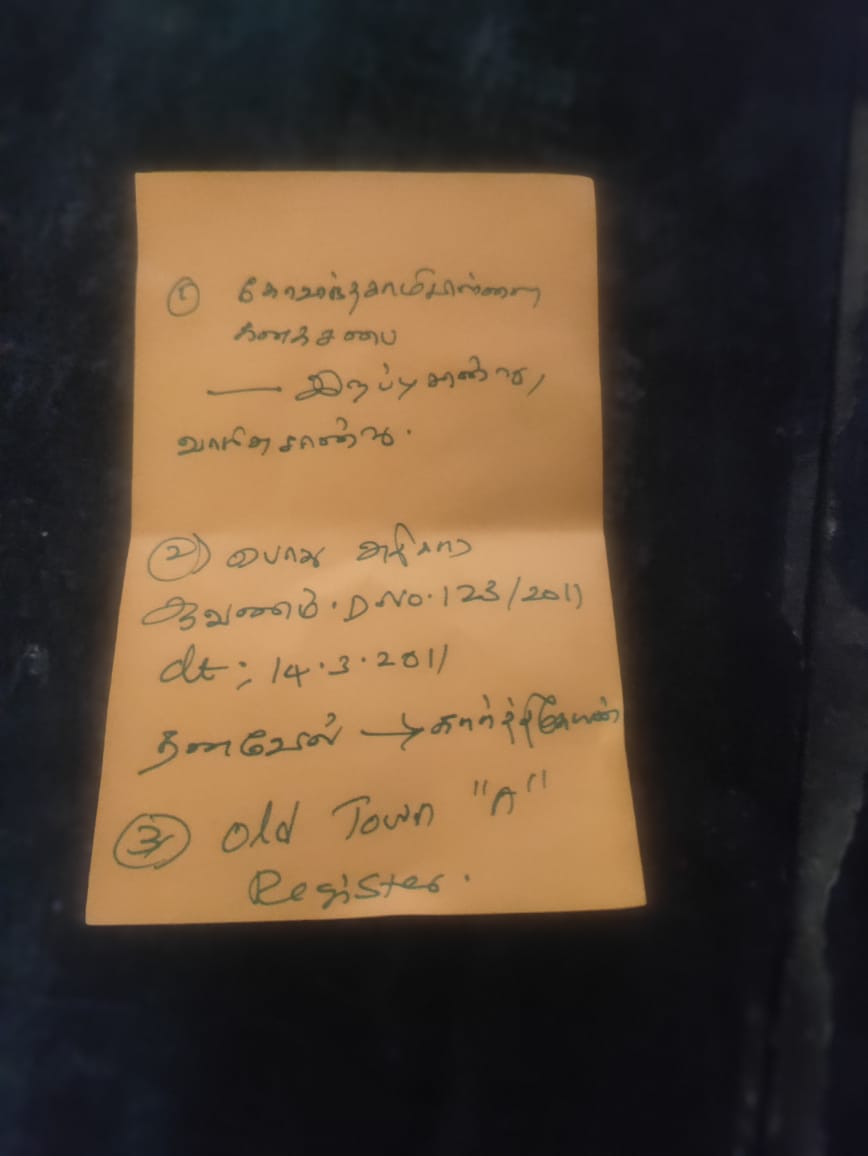 ① கோவிந்தசாமிபிள்ளை
கனகசபை
— இறப்பு சான்று,
வாரிசு சான்று.
② பொது அதிகார
ஆவணம். D No. 123/2011
dt; 14.3.2011
தனவேல் → கார்த்திகேயன்
③ Old Town "A"
Register.